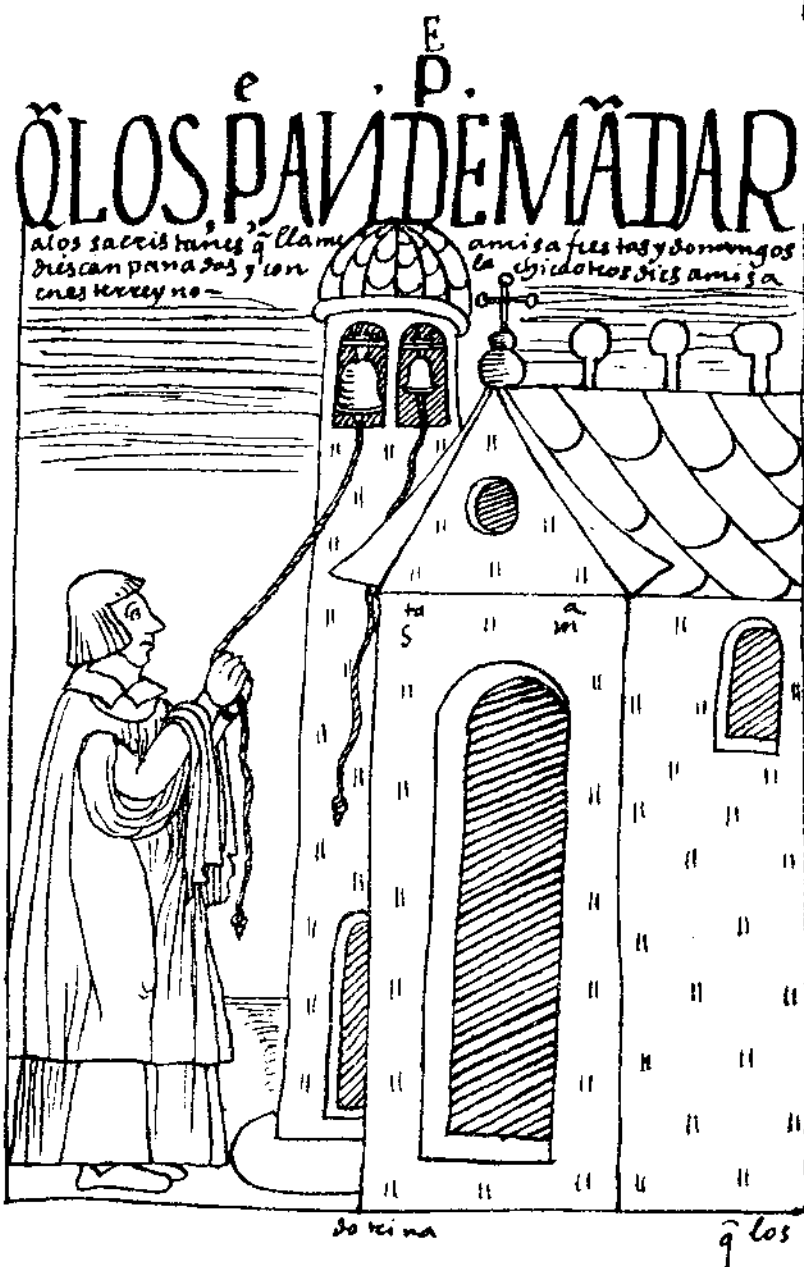 E
e P
Q̃LOS PAN DEMÃDAR
a los sacristanes q̃ llame a misa fiestas y domingos
dies canpanadas y con la chica otros dies a misa
en este rreyno
S ta m a
dotrina
q̃ los